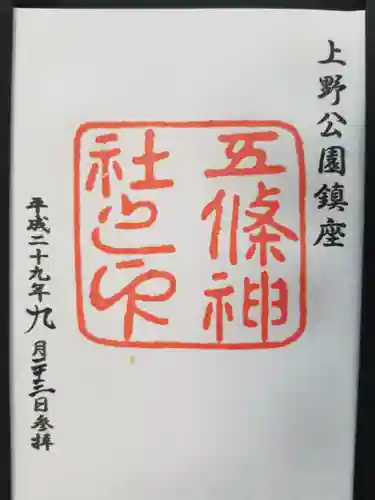 上野公園鎮座
五條神
社之印
平成二十九年九月二十三日参拝